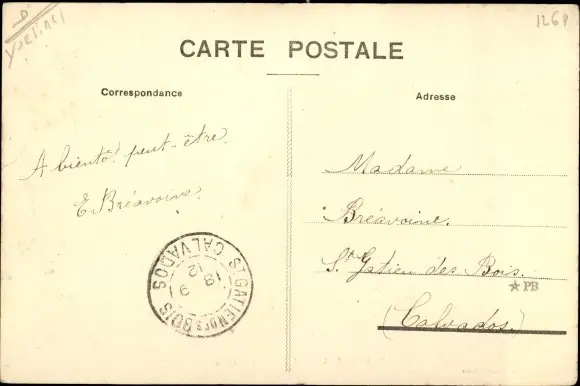 YVELINES
1269
CARTE POSTALE
Correspondance
Adresse
A bientôt peut-être
E. Bréavoine.
Madame
Bréavoine.
St Gatien des Bois.
(Calvados.)
★ PB
ST GATIEN DES BOIS
CALVADOS
18 9
12